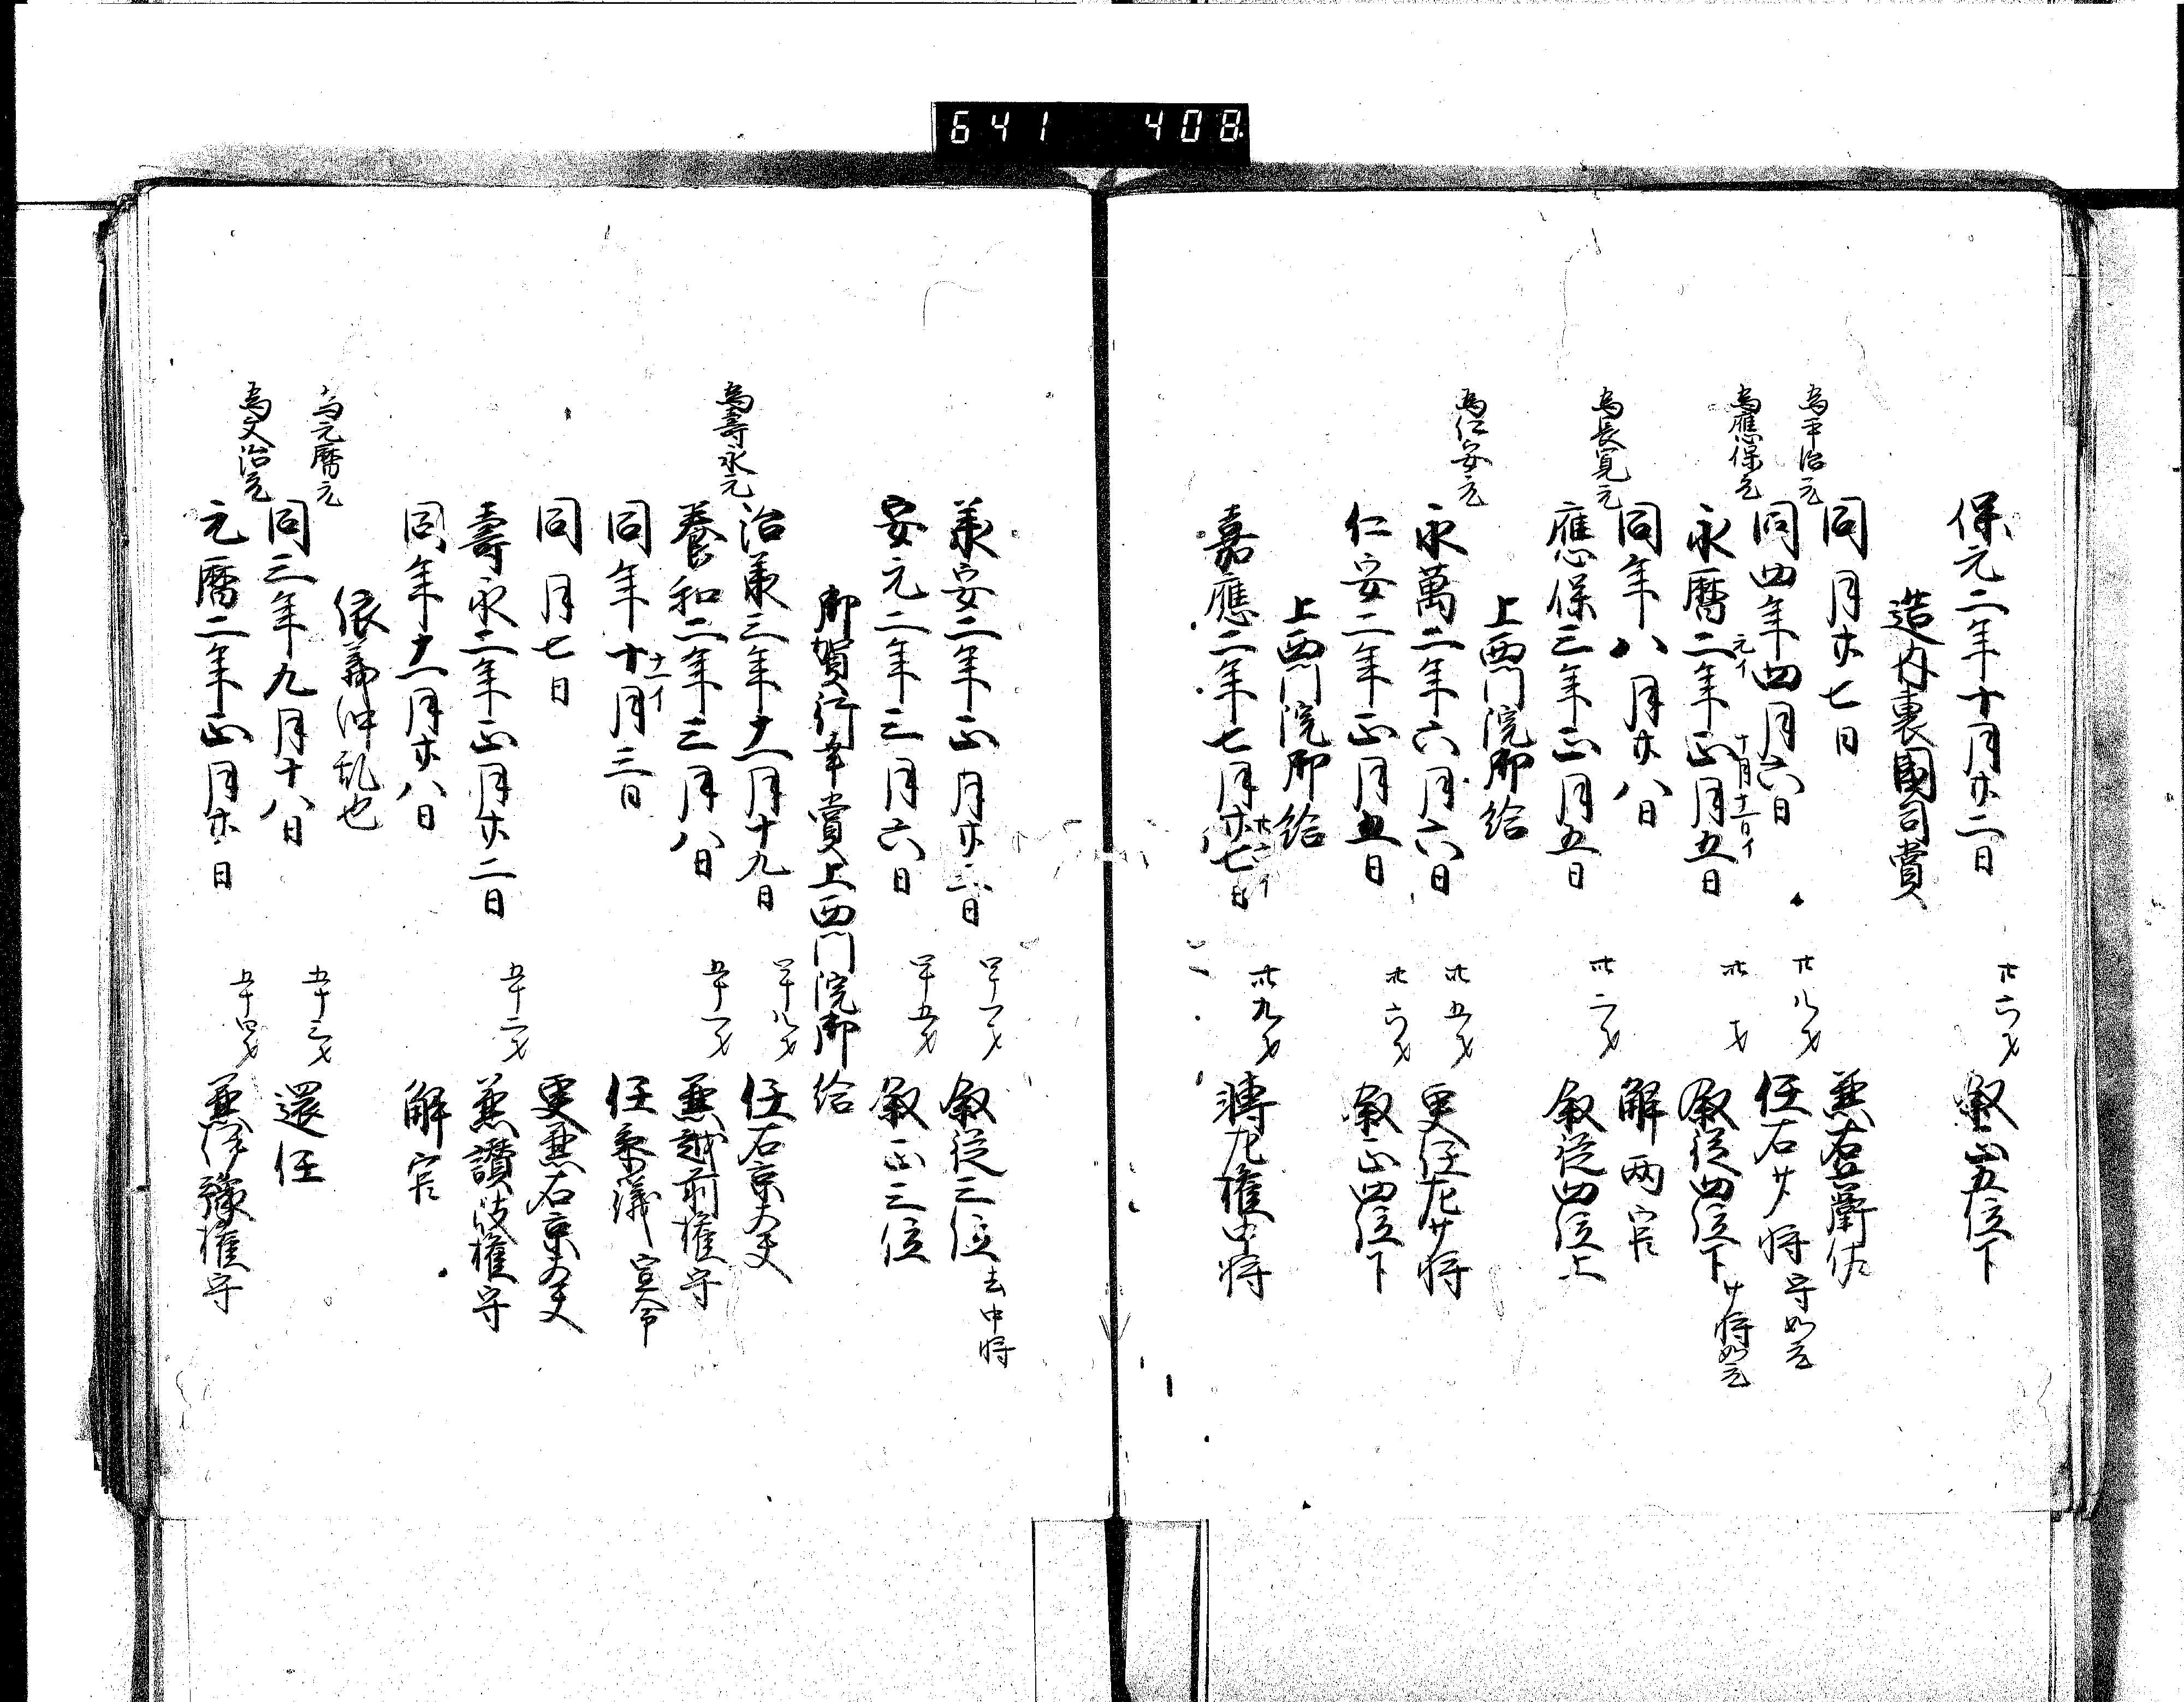 641 408
保元二年十月廿二日 廿六才 叙正五位下
造内裏國司賞
同月廿七日 兼右兵衛佐
為平治元
同四年四月六日 廿八才 任右少将 守如元
為應保元
永暦二年正月五日 卅才 叙従四位下 少将如元
元イ 十月十一日イ
同年八月廿八日 解両官
為長寛元
應保三年正月五日 卅二才 叙従四位上
上西門院御給
為仁安元
永萬二年六月六日 卅五才 更任左少将
仁安二年正月五日 卅六才 叙正四位下
上西門院御給
嘉應二年七月廿七日 卅九才 轉左権中将
承安二年正月廿三日 四十一才 叙従三位 去中将
安元二年三月六日 四十五才 叙正三位
御賀行幸賞上西門院御給
治承三年十一月十九日 四十八才 任右京大夫
為壽永元
養和二年三月八日 五十一才 兼越前権守
同年十月三日 任参議 宣命
十一イ
同月七日 更兼右京大夫
壽永二年正月廿二日 五十二才 兼讃岐権守
同年十一月廿八日 解官
依義仲乱也
為元暦元
同三年九月十八日 五十三才 還任
為文治元
元暦二年正月廿日 五十四才 兼伊豫権守